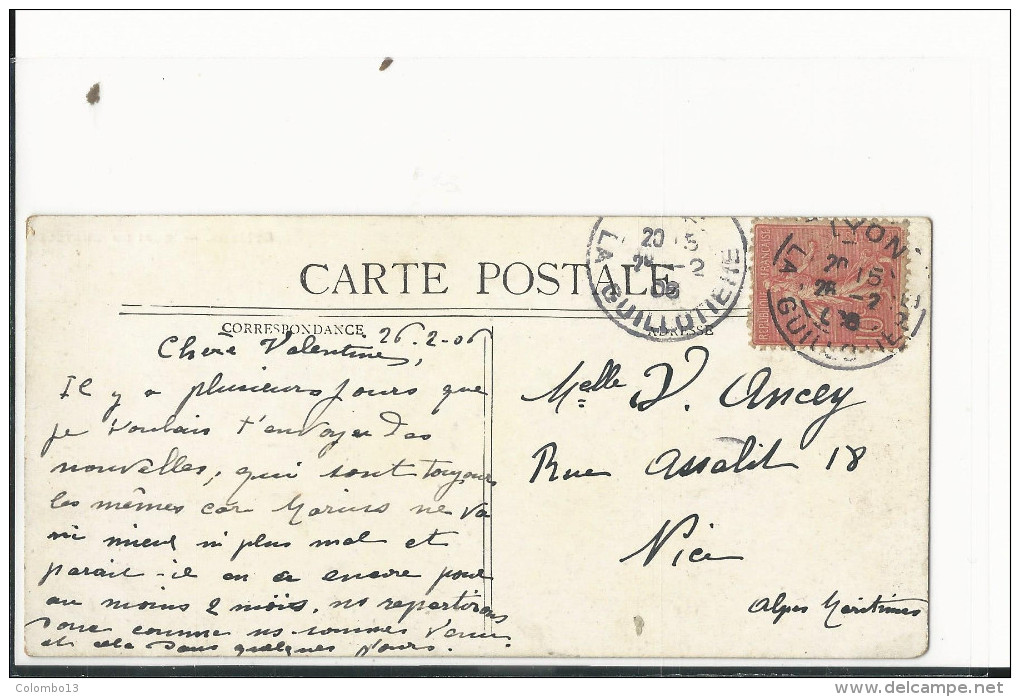 CARTE POSTALE
CORRESPONDANCE
26-2-06
Chère Valentine,
Il y a plusieurs jours que
je voulais t'envoyer des
nouvelles, qui sont toujours
les mêmes car Marius ne va
ni mieux ni plus mal et
parait-il en a encore pour
au moins 2 mois. ns repartirons
donc comme ns sommes venus
et cela dans quelques jours.
ADRESSE
Melle V. Ancey
Rue Assalit 18
Nice
Alpes Maritimes
20 15
26 -2
06
LA GUILLOTIERE
LYON
20 15
26 -2
LA GUILLOTIERE
REPUBLIQUE FRANÇAISE
10
Colombo13
delcampe.net